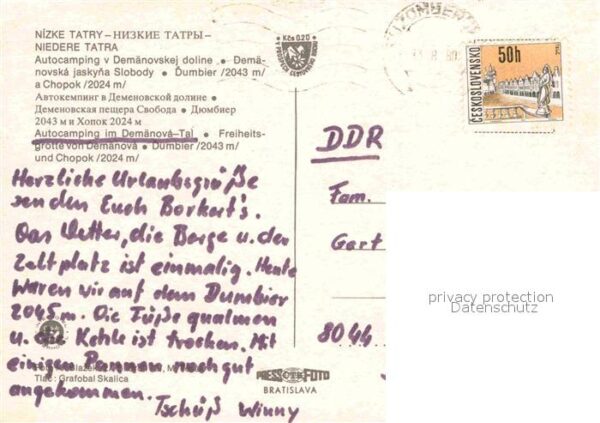 NÍZKE TATRY – НИЗКИЕ ТАТРЫ –
NIEDERE TATRA
Autocamping v Demänovskej doline • Demä-
novská jaskyňa Slobody • Ďumbier /2043 m/
a Chopok /2024 m/
Автокемпинг в Деменовской долине •
Деменовская пещера Свобода • Дюмбиер
2043 м и Хопок 2024 м
Autocamping im Demänová-Tal • Freiheits-
grotte von Demänová • Ďumbier /2043 m/
und Chopok /2024 m/
Kčs 0,20
ČESKOSLOVENSKO
50h
Herzliche Urlaubsgrüße
senden Euch Borkert's.
Das Wetter, die Berge u. der
Zeltplatz ist einmalig. Heute
waren wir auf dem Dumbier
2045 m. Die Füße qualmen
u. die Kehle ist trocken. Mit
einigen Pannen noch gut
angekommen.
Tschüß Winny
DDR
Fam.
Gart
8044
privacy protection
Datenschutz
Tlač: Grafobal Skalica
PRESSFOTO
BRATISLAVA